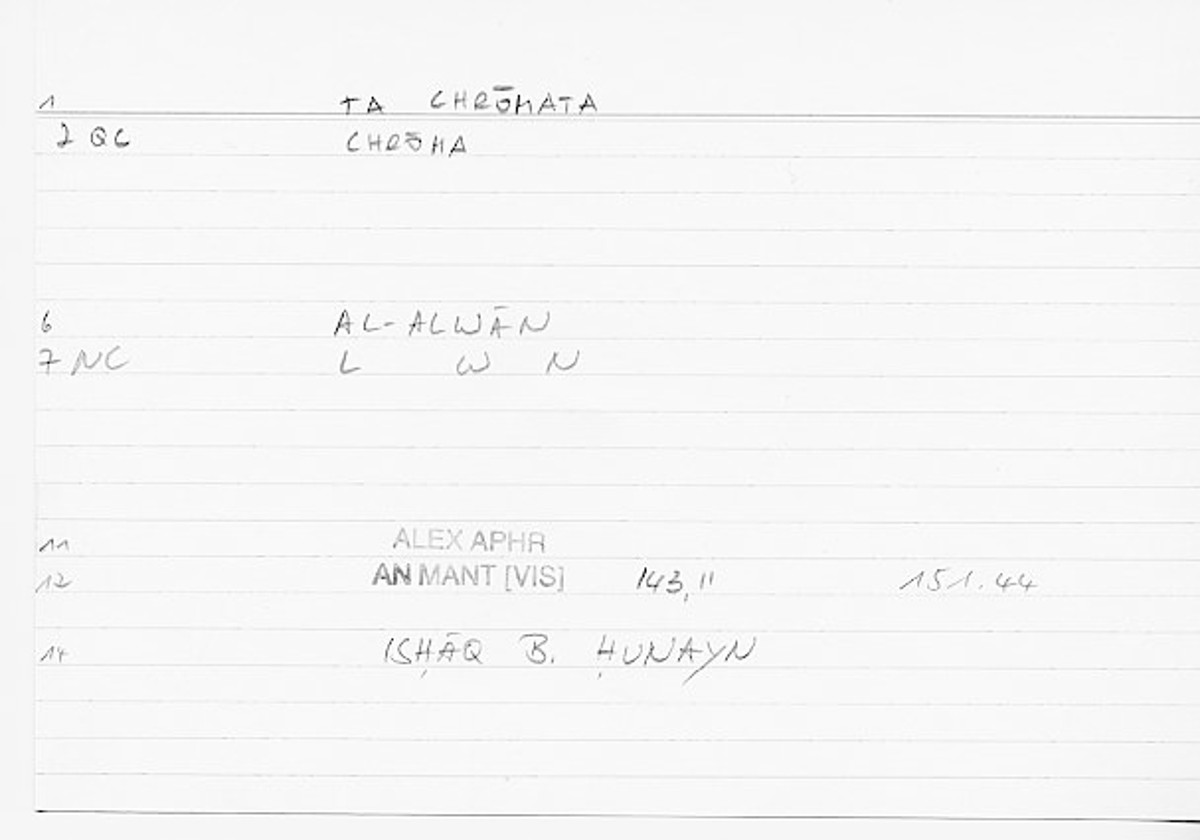 1 TA CHRŌMATA
2 QC CHRŌMA
6 AL-ALWĀN
7 NC L W N
11 ALEX APHR
12 AN MANT [VIS] 143,11 151.44
14 ISḤĀQ B. ḤUNAYN